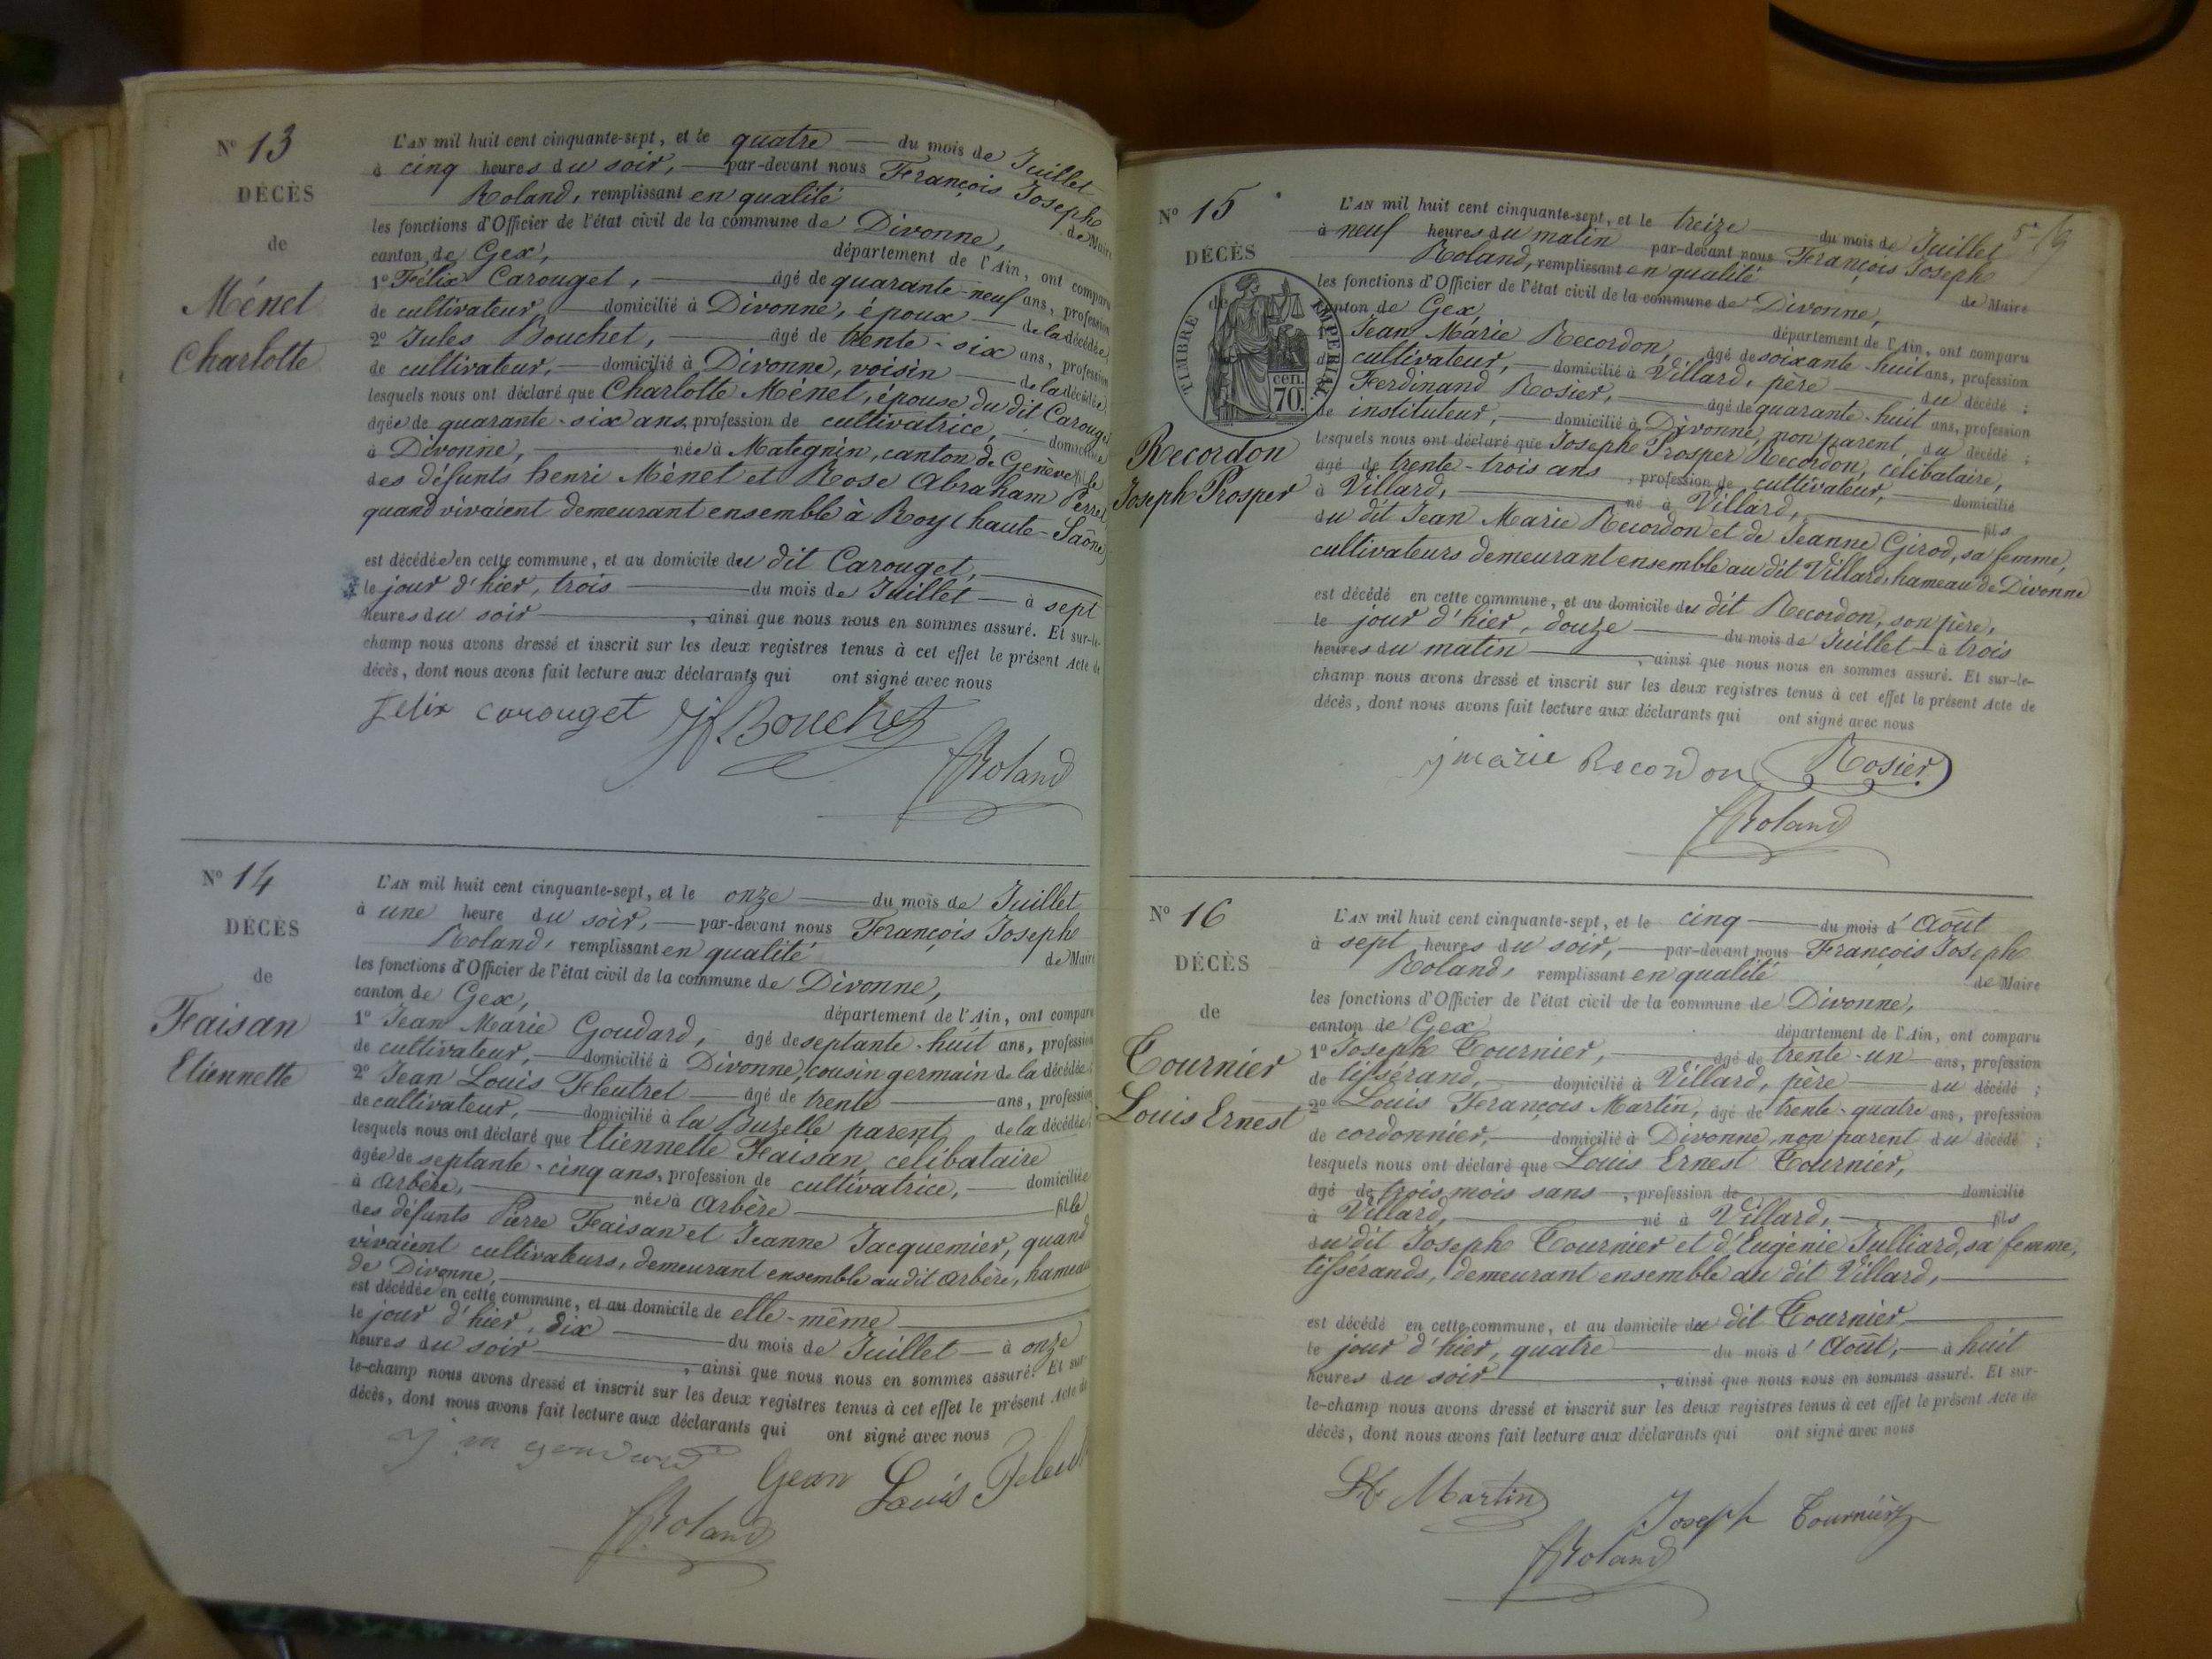 Nº 13
DÉCÈS
de
Ménet
Charlotte
L'AN mil huit cent cinquante-sept, et le quatre du mois de Juillet
à cinq heures du soir, par-devant nous François Joseph
Roland, remplissant en qualité de Maire
les fonctions d'Officier de l'état civil de la commune de Divonne,
canton de Gex, département de l'Ain, ont comparu
1º Félix Carouget, âgé de quarante-neuf ans, profession
de cultivateur, domicilié à Divonne, époux de la décédée
2º Jules Bouchet, âgé de trente-six ans, profession
de cultivateur, domicilié à Divonne, voisin de la décédée
lesquels nous ont déclaré que Charlotte Ménet, épouse du dit Carouget
âgée de quarante-six ans, profession de cultivatrice, domiciliée
à Divonne, née à Mategnin, canton de Genève
des défunts henri Ménet et Rose Abraham Perret,
quand vivaient demeurant ensemble à Roy (haute-Saône)
est décédée en cette commune, et au domicile du dit Carouget,
le jour d'hier, trois du mois de Juillet à sept
heures du soir, ainsi que nous nous en sommes assuré. Et sur-le-
champ nous avons dressé et inscrit sur les deux registres tenus à cet effet le présent Acte de
décès, dont nous avons fait lecture aux déclarants qui ont signé avec nous
Felix carouget J Bouchet
Roland
Nº 14
DÉCÈS
de
Faisan
Etiennette
L'AN mil huit cent cinquante-sept, et le onze du mois de Juillet
à une heure du soir, par-devant nous François Joseph
Roland, remplissant en qualité de Maire
les fonctions d'Officier de l'état civil de la commune de Divonne,
canton de Gex, département de l'Ain, ont comparu
1º Jean Marie Goudard, âgé de septante-huit ans, profession
de cultivateur, domicilié à Divonne, cousin germain de la décédée;
2º Jean Louis Fleutret âgé de trente ans, profession
de cultivateur, domicilié à la Buzelle parent de la décédée;
lesquels nous ont déclaré que Etiennette Faisan, célibataire
âgée de septante-cinq ans, profession de cultivatrice, domiciliée
à Arbère, née à Arbère fille
des défunts Pierre Faisan et Jeanne Jacquemier, quand
vivaient cultivateurs, demeurant ensemble au dit Arbère, hameau
de Divonne,
est décédée en cette commune, et au domicile de elle-même
le jour d'hier, dix du mois de Juillet à onze
heures du soir, ainsi que nous nous en sommes assuré. Et sur-
le-champ nous avons dressé et inscrit sur les deux registres tenus à cet effet le présent Acte de
décès, dont nous avons fait lecture aux déclarants qui ont signé avec nous
j m goudard
Gean Louis
Roland
Nº 15
DÉCÈS
de
TIMBRE IMPÉRIAL
cen.
70.
Recordon
Joseph Prosper
L'AN mil huit cent cinquante-sept, et le treize du mois de Juillet
à neuf heures du matin par-devant nous François Joseph
Roland, remplissant en qualité de Maire
les fonctions d'Officier de l'état civil de la commune de Divonne,
canton de Gex, département de l'Ain, ont comparu
1º Jean Marie Recordon, âgé de soixante-huit ans, profession
de cultivateur, domicilié à Villard, père du décédé;
Ferdinand Rosier, âgé de quarante-huit ans, profession
de instituteur, domicilié à Divonne, non parent du décédé;
lesquels nous ont déclaré que Joseph Prosper Recordon, célibataire,
âgé de trente-trois ans, profession de cultivateur, domicilié
à Villard, né à Villard, fils
du dit Jean Marie Recordon et de Jeanne Girod, sa femme,
cultivateurs demeurant ensemble au dit Villard, hameau de Divonne
est décédé en cette commune, et au domicile du dit Recordon, son père,
le jour d'hier, douze du mois de Juillet à trois
heures du matin, ainsi que nous nous en sommes assuré. Et sur-le-
champ nous avons dressé et inscrit sur les deux registres tenus à cet effet le présent Acte de
décès, dont nous avons fait lecture aux déclarants qui ont signé avec nous
j marie Recordon Rosier
Roland
Nº 16
DÉCÈS
de
Tournier
Louis Ernest
L'AN mil huit cent cinquante-sept, et le cinq du mois d'Août
à sept heures du soir, par-devant nous François Joseph
Roland, remplissant en qualité de Maire
les fonctions d'Officier de l'état civil de la commune de Divonne,
canton de Gex, département de l'Ain, ont comparu
1º Joseph Tournier, âgé de trente-un ans, profession
de tissérand, domicilié à Villard, père du décédé;
2º Louis François Martin, âgé de trente-quatre ans, profession
de cordonnier, domicilié à Divonne, non parent du décédé;
lesquels nous ont déclaré que Louis Ernest Tournier,
âgé de trois mois sans, profession de domicilié
à Villard, né à Villard, fils
du dit Joseph Tournier et d'Eugénie Julliard, sa femme,
tissérands, demeurant ensemble au dit Villard,
est décédé en cette commune, et au domicile du dit Tournier,
le jour d'hier, quatre du mois d'Août, à huit
heures du soir, ainsi que nous nous en sommes assuré. Et sur-
le-champ nous avons dressé et inscrit sur les deux registres tenus à cet effet le présent Acte de
décès, dont nous avons fait lecture aux déclarants qui ont signé avec nous
Martin
Joseph Tournier
Roland